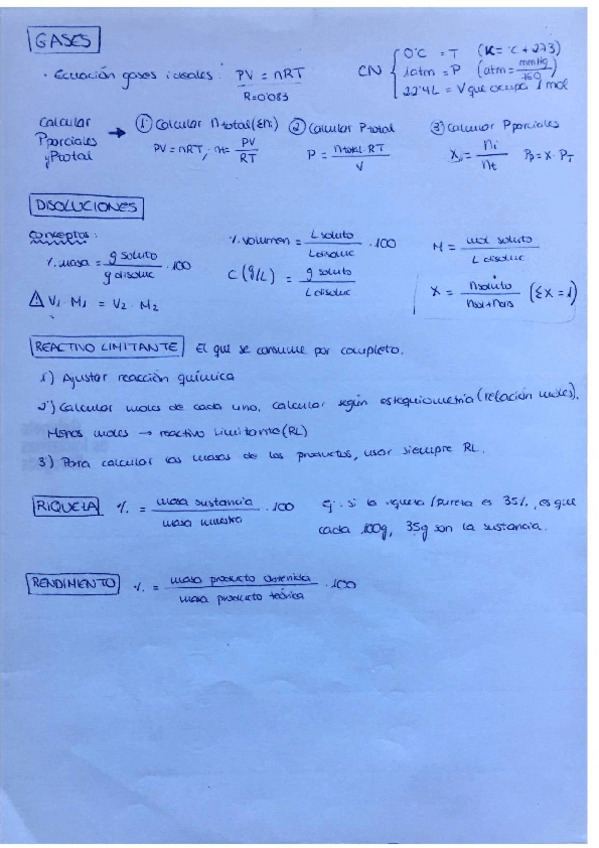 GASES
· Ecuación gases ideales: PV = nRT
R=0'083
CN { 0°C = T (K = °C + 273)
1atm = P (atm = mmHg/760)
22'4L = V que ocupa 1 mol
Calcular Pparciales y Ptotal → ① Calcular ntotal (Σni) ② Calcular Ptotal ③ Calcular Pparciales
PV = nRT; nt = PV/RT P = ntotal·RT/V Xi = ni/nt Pp = X · PT
DISOLUCIONES
Conceptos:
% masa = g soluto/g disoluc · 100 % volumen = L soluto/L disoluc · 100 M = mol soluto/L disoluc
C (g/L) = g soluto/L disoluc X = nsoluto/nsol+ndis (ΣX = 1)
⚠ V1 · M1 = V2 · M2
REACTIVO LIMITANTE El que se consume por completo.
1) Ajustar reacción química
2) Calcular moles de cada uno, calcular según estequiometría (relación moles).
Menos moles → reactivo Limitante (RL)
3) Para calcular las masas de los productos, usar siempre RL.
RIQUEZA % = masa sustancia/masa muestra · 100 Ej: si la riqueza/pureza es 35%, es que
cada 100g, 35g son la sustancia.
RENDIMIENTO % = masa producto obtenida/masa producto teórica · 100